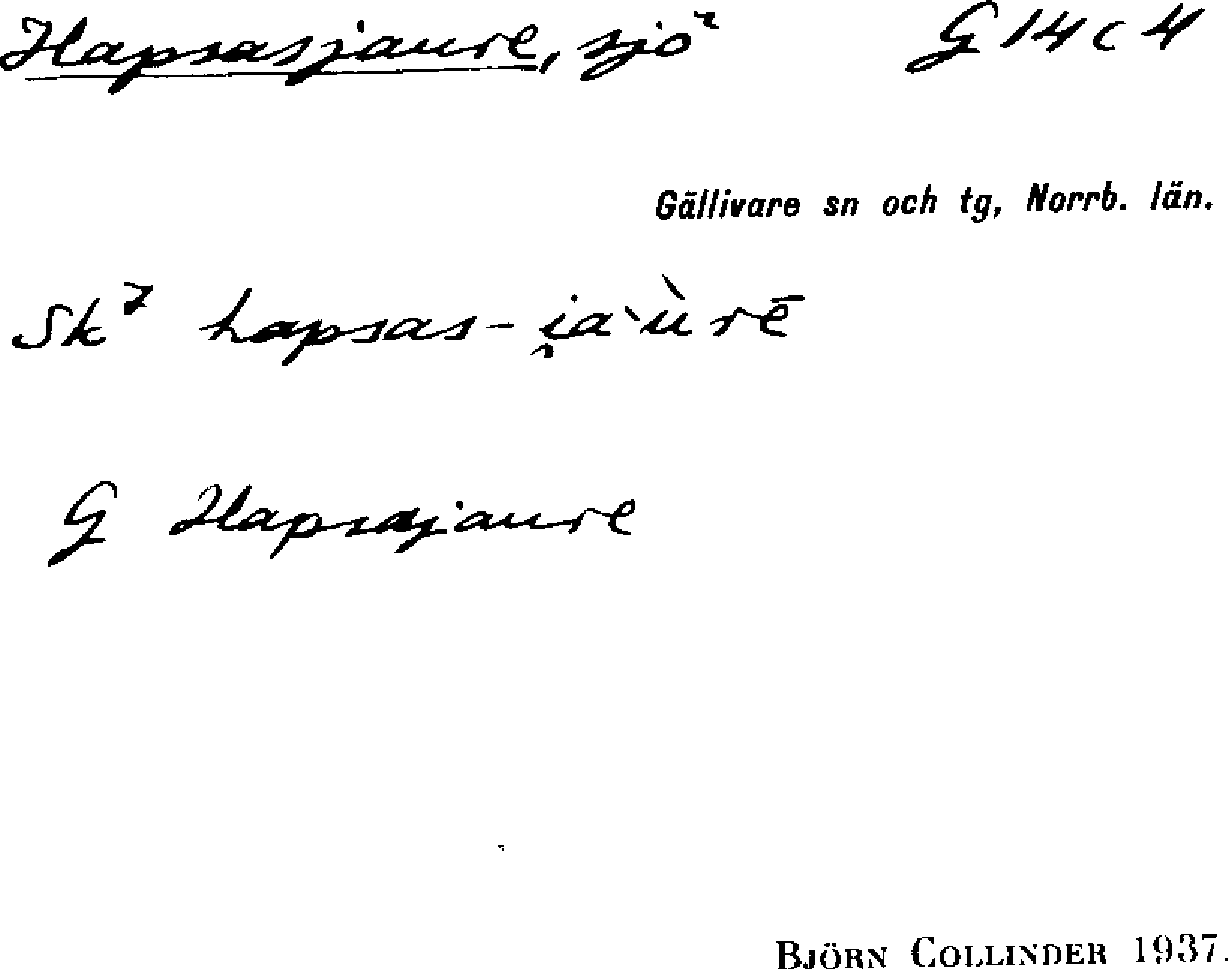 Hapsasjaure, sjö G 14 c 4
Gällivare sn och tg, Norrb. län.
Sk⁷ hapsas-i̯a`ù rē
G Hapsajaure
BJÖRN COLLINDER 1937.